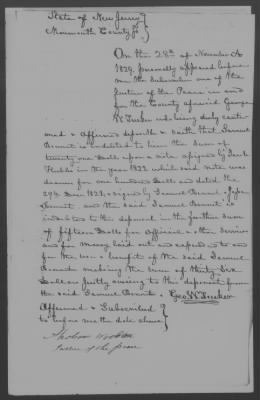 State of New Jersey
Monmouth County Ss
On the 28th of November A
1829, personally appeared before
me the Subscriber one of the
Justices of the Peace in and
for the County aforesaid George
W. Tucker who being duly
and Affirmed deposeth & saith that Samuel
Bennet is indebted to him the Sum of
twenty one Dolls upon a note by
in the year 1822 which said note was
drawn for one hundred Dolls and dated the
29th June 1822, signed by Samuel Bennet
Bennet and the said Samuel Bennet is
indebted to this deponent in the further sum
of fifteen Dolls for Official & other Services
and for money laid out and expended to and
for the use & benefit of the said Samuel
Bennet making the sum of thirty Six
Dollars justly owing to this deponent from
the said Samuel Bennet. Geo. W. Tucker
Affirmed & Subscribed
to before me the date above
Justice of the peace